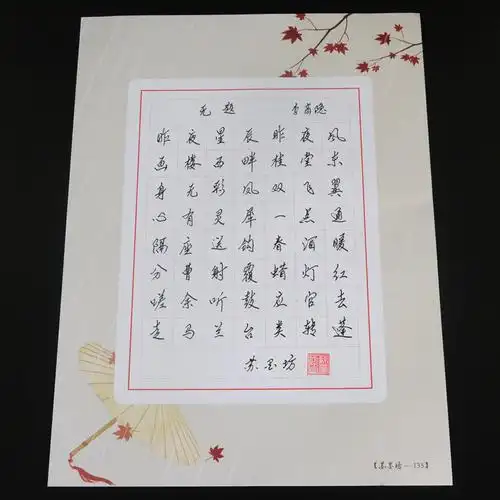 无题 李商隐
昨夜星辰昨夜风
画楼西畔桂堂东
身无彩凤双飞翼
心有灵犀一点通
隔座送钩春酒暖
分曹射覆蜡灯红
嗟余听鼓应官去
走马兰台类转蓬
苏墨坊
【苏墨坊—135】